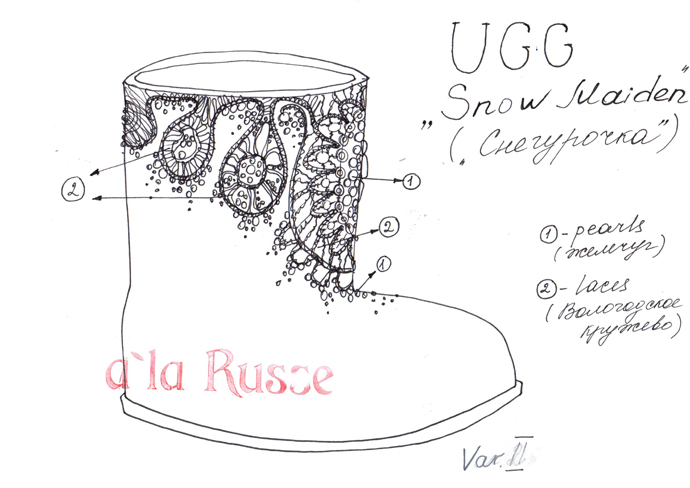 UGG
„Snow Maiden"
(„Снегурочка")
2
1
2
1
1 - pearls
(жемчуг)
2 - laces
(Вологодское
кружево)
a`la Russe
Var. II